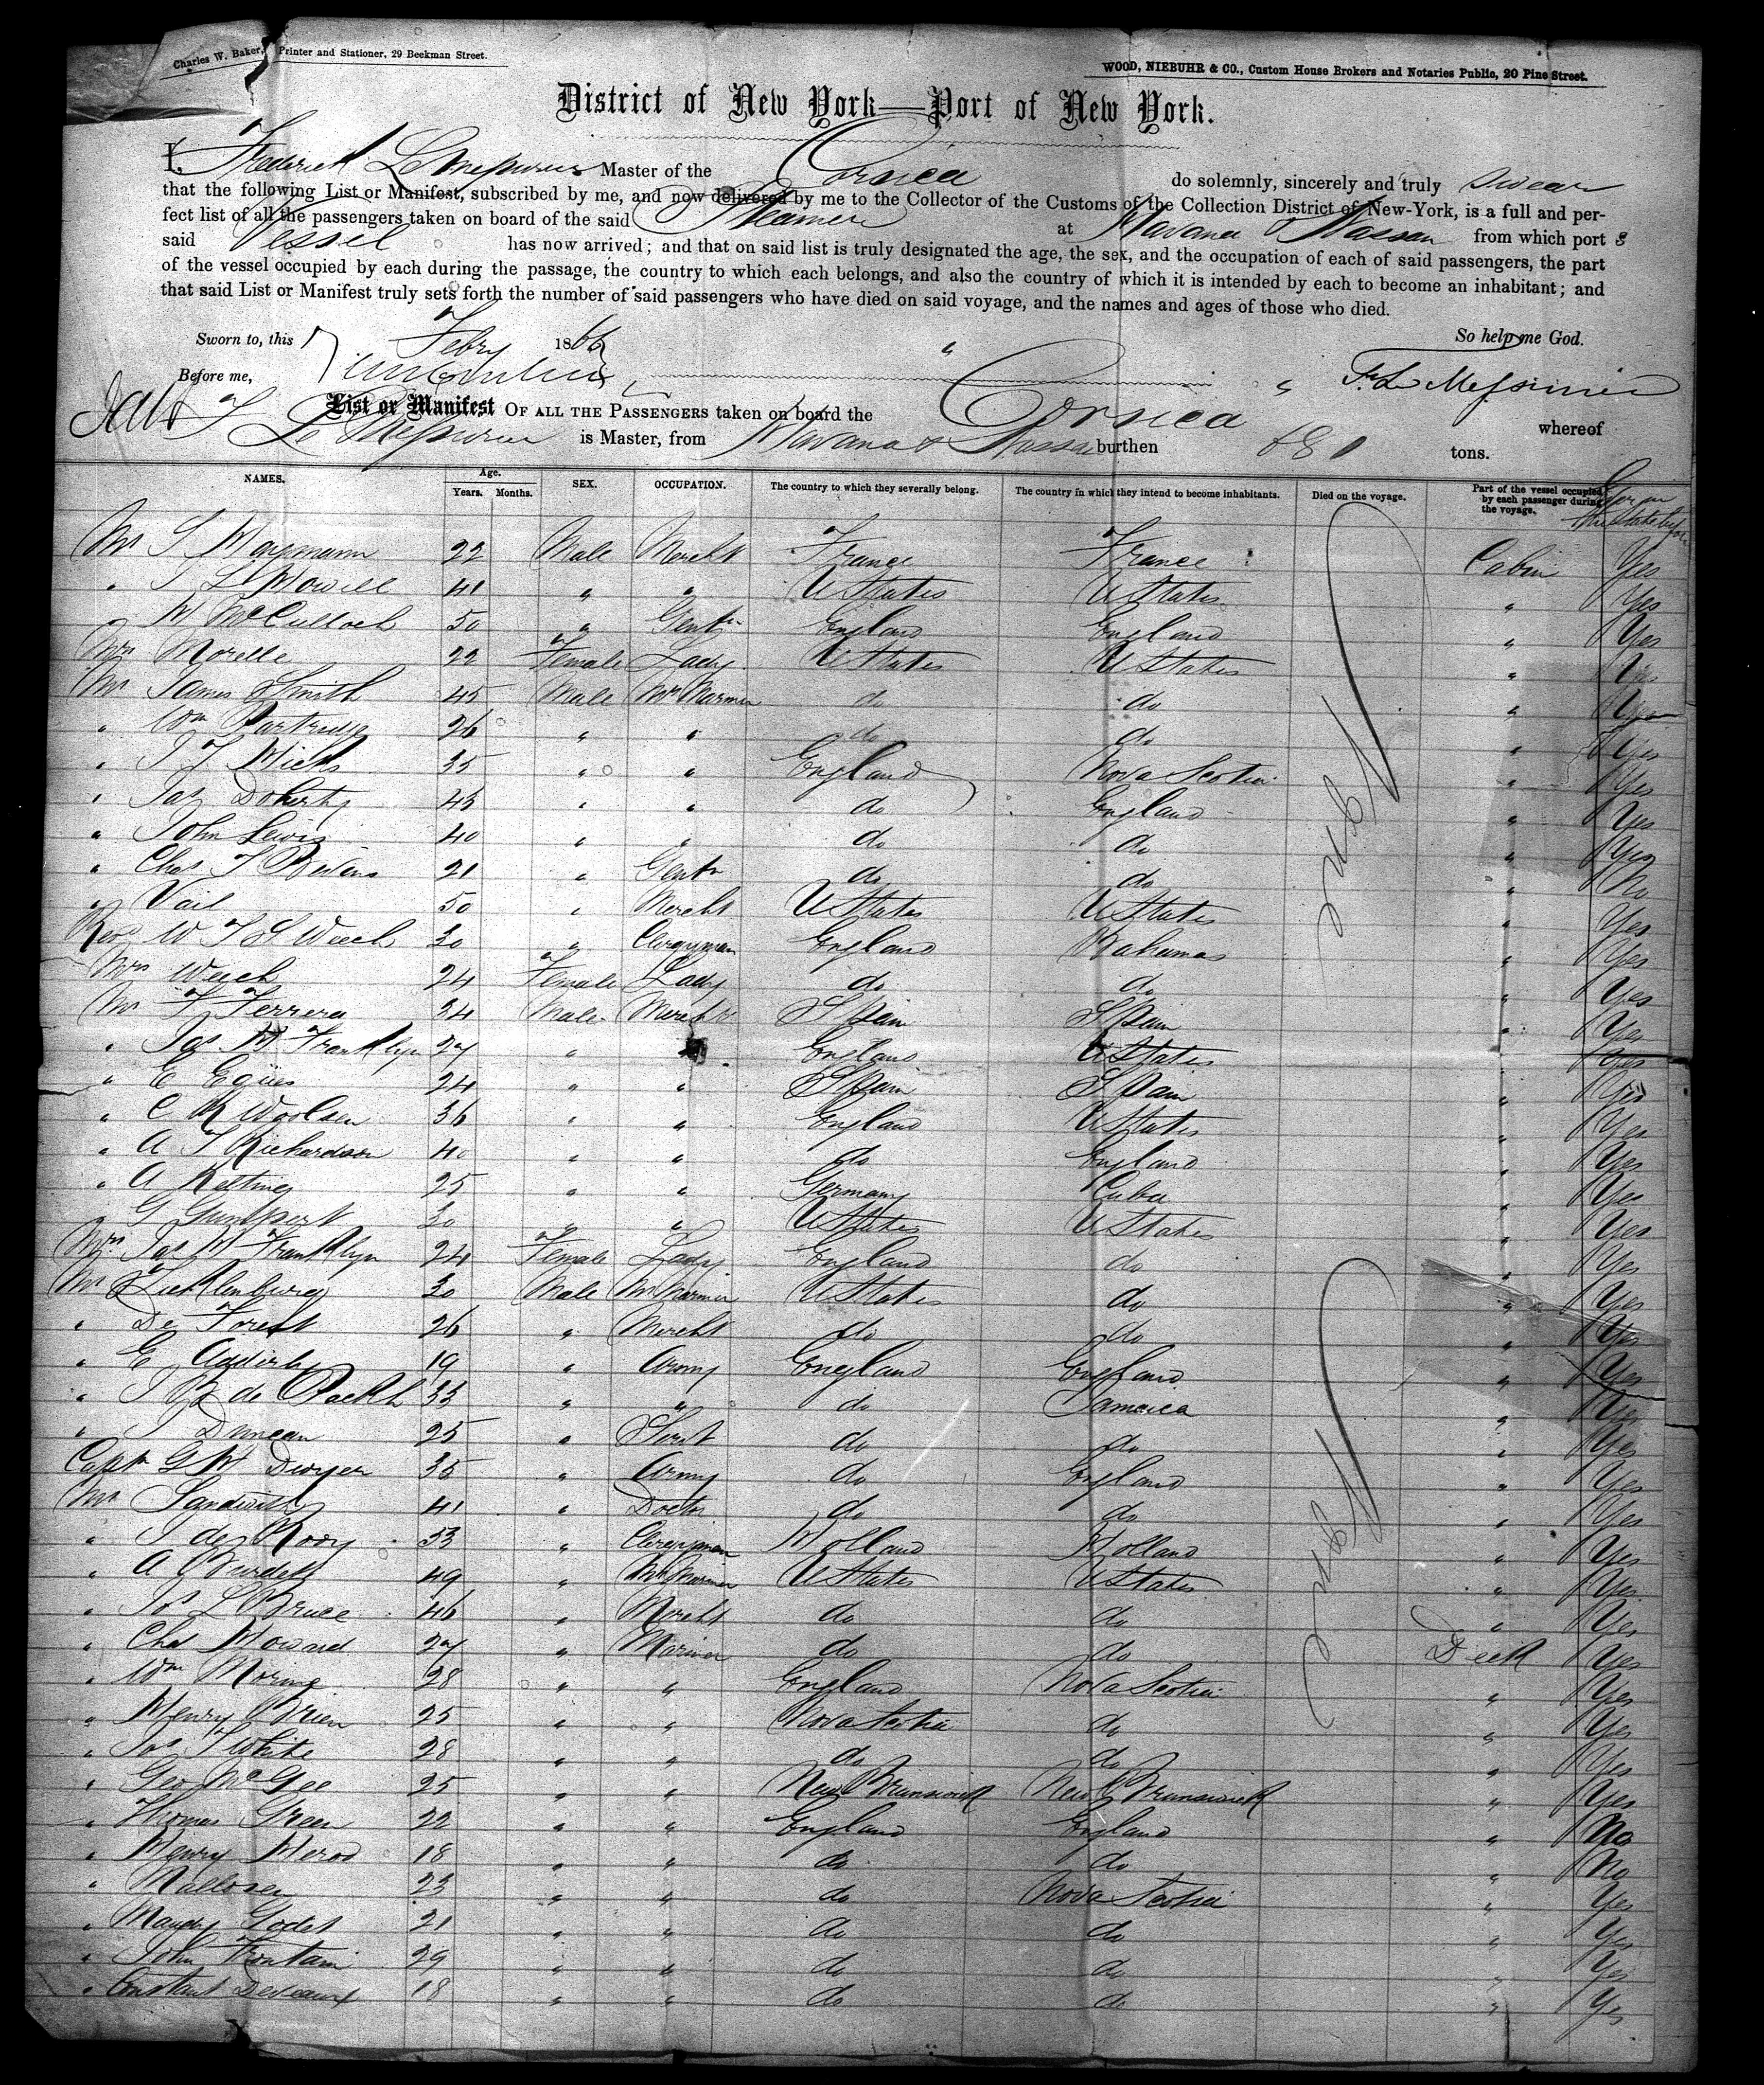 Charles W. Baker, Printer and Stationer, 29 Beekman Street.
WOOD, NIEBUHR & CO., Custom House Brokers and Notaries Public, 20 Pine Street.
District of New York—Port of New York.
I, Frederick Le Messurier Master of the Corsica do solemnly, sincerely and truly swear
that the following List or Manifest, subscribed by me, and now delivered by me to the Collector of the Customs of the Collection District of New-York, is a full and per-
fect list of all the passengers taken on board of the said Steamer at Havana & Nassau from which port s
said Vessel has now arrived; and that on said list is truly designated the age, the sex, and the occupation of each of said passengers, the part
of the vessel occupied by each during the passage, the country to which each belongs, and also the country of which it is intended by each to become an inhabitant; and
that said List or Manifest truly sets forth the number of said passengers who have died on said voyage, and the names and ages of those who died.
Sworn to, this 7 Febry 1866 So help me God.
Before me, F. Le Messurier
List or Manifest OF ALL THE PASSENGERS taken on board the Corsica whereof
F Le Messurier is Master, from Havana & Nassau burthen 680 tons.
NAMES. Age. Years. Months. SEX. OCCUPATION. The country to which they severally belong. The country in which they intend to become inhabitants. Died on the voyage. Part of the vessel occupied by each passenger during the voyage.
Mr S 22 Male Mercht France France Cabin Yes
" 41 " " U States U States " Yes
" H McCulloch 50 " Gentn England England " Yes
Mrs Morelle 22 Female Lady U States U States " Yes
Mr James Smith 45 Male Mr Mariner do do " Yes
" Wm Partridge 26 " " do do " Yes
" 35 " " England Nova Scotia " Yes
" Jas Doherty 43 " " do England " Yes
" John Lewis 40 " " do do " Yes
" Chas 21 " Gentn do do " No
" Vail 50 " Mercht U States U States " Yes
Revd W T S Weech 30 " Clergyman England Bahamas " Yes
Mrs Weech 24 Female Lady do do " Yes
Mr F Ferrera 34 Male Mercht Spain Spain " Yes
" Jas H Franklyn 27 " England U States " Yes
" E Egües 24 " " Spain Spain " Yes
" C R Woolsen 36 " " England U States " Yes
" A J Richardson 40 " " do England " Yes
" A Kelting 25 " " Germany Cuba " Yes
" G Gumpert 30 " " U States U States " Yes
Mrs Jas H Franklyn 24 Female Lady England do " Yes
Mr 30 Male Mr Mariner U States do " Yes
" De Forest 26 " Mercht do do " Yes
" E Adderly 19 " Army England England " Yes
" 33 " " do Jamaica " Yes
" J Duncan 25 " do do " Yes
Captn G H Dwyer 35 " Army do England " Yes
Mr Sandwith 41 " Doctor do do " Yes
" 53 " Clergyman Holland Holland " Yes
" A Burdett 49 " Mr Mariner U States U States " Yes
" Jos L Bruce 46 " Mercht do do " Yes
" Chas Howard 27 " Mariner do do Deck Yes
" Wm Moring 28 " " England Nova Scotia " Yes
" Henry Brien 25 " " Nova Scotia do " Yes
" Jas T White 28 " " do do " Yes
" Geo McGee 25 " " New Brunswick New Brunswick " Yes
" Thomas Green 22 " " England England " No
" Henry 18 " " do do " No
" 23 " " do Nova Scotia " Yes
" Godet 21 " " do do " Yes
" John Frontain 29 " " do do " Yes
" Constant Deveaux 18 " " do do " Yes